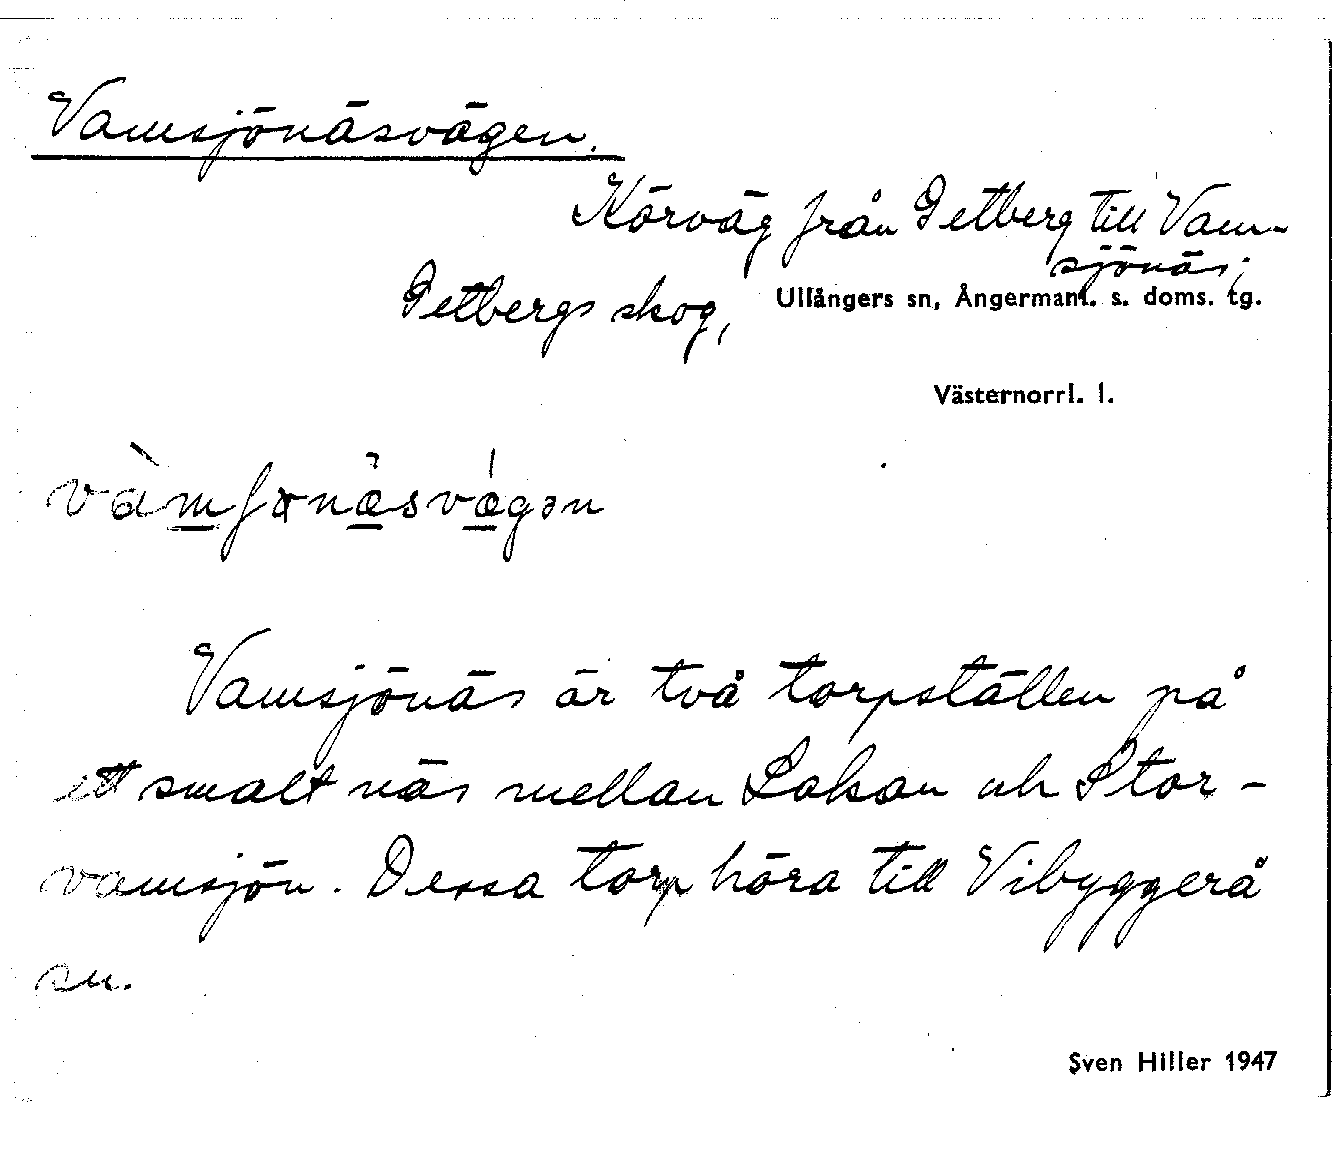 Vamsjönäsvägen.
Körväg från Getberg till Vam-
sjönäs;
Getbergs skog, Ullångers sn, Ångermanl. s. doms. tg.
Västernorrl. l.
Vamsjönäs är två torpställen på
ett smalt näs mellan Lakan och Stor-
vamsjön. Dessa torp höra till Vibyggerå
sn.
Sven Hiller 1947